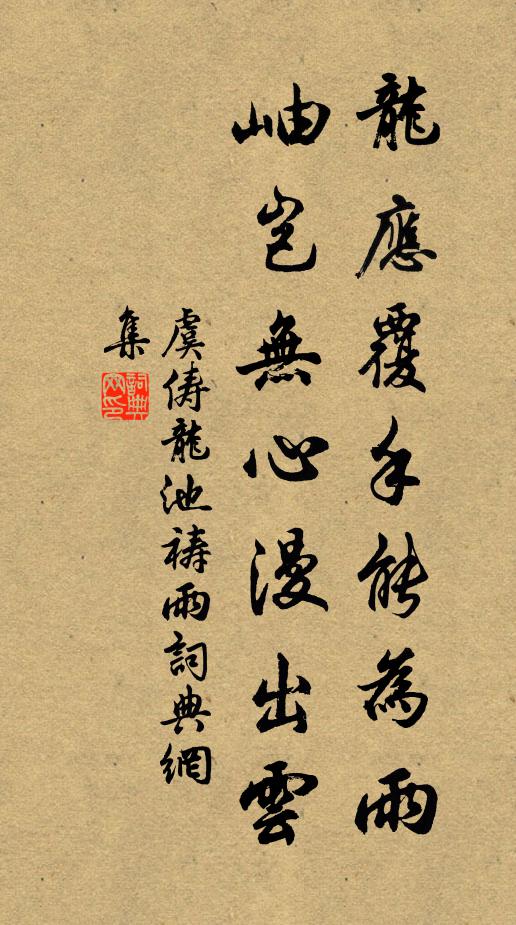 龍應覆手能為雨
岫豈無心漫出雲
虞儔龍池禱雨詞典網
集
詞典
网印